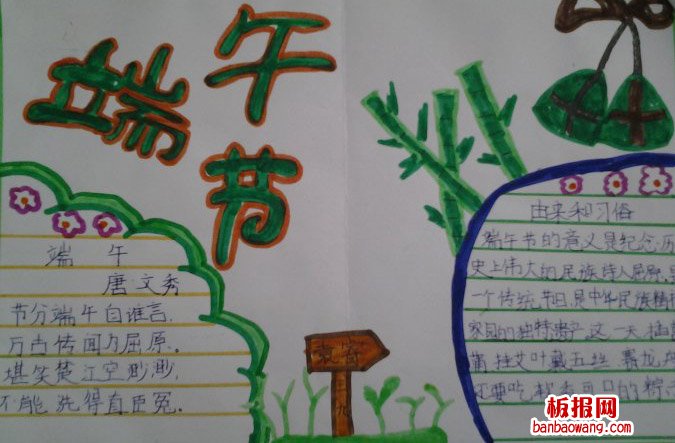 端午节
端 午
唐 文秀
节分端午自谁言,
万古传闻为屈原。
堪笑楚江空渺渺,
不能洗得直臣冤。
由来和习俗
端午节的意义是纪念历
史上伟大的民族诗人屈原,是
一个传统节日,是中华民族精
家园的独特遗产。这一天,插
蒲挂艾叶戴五丝,赛龙
还要吃 的粽
板报网
banbaowang.com